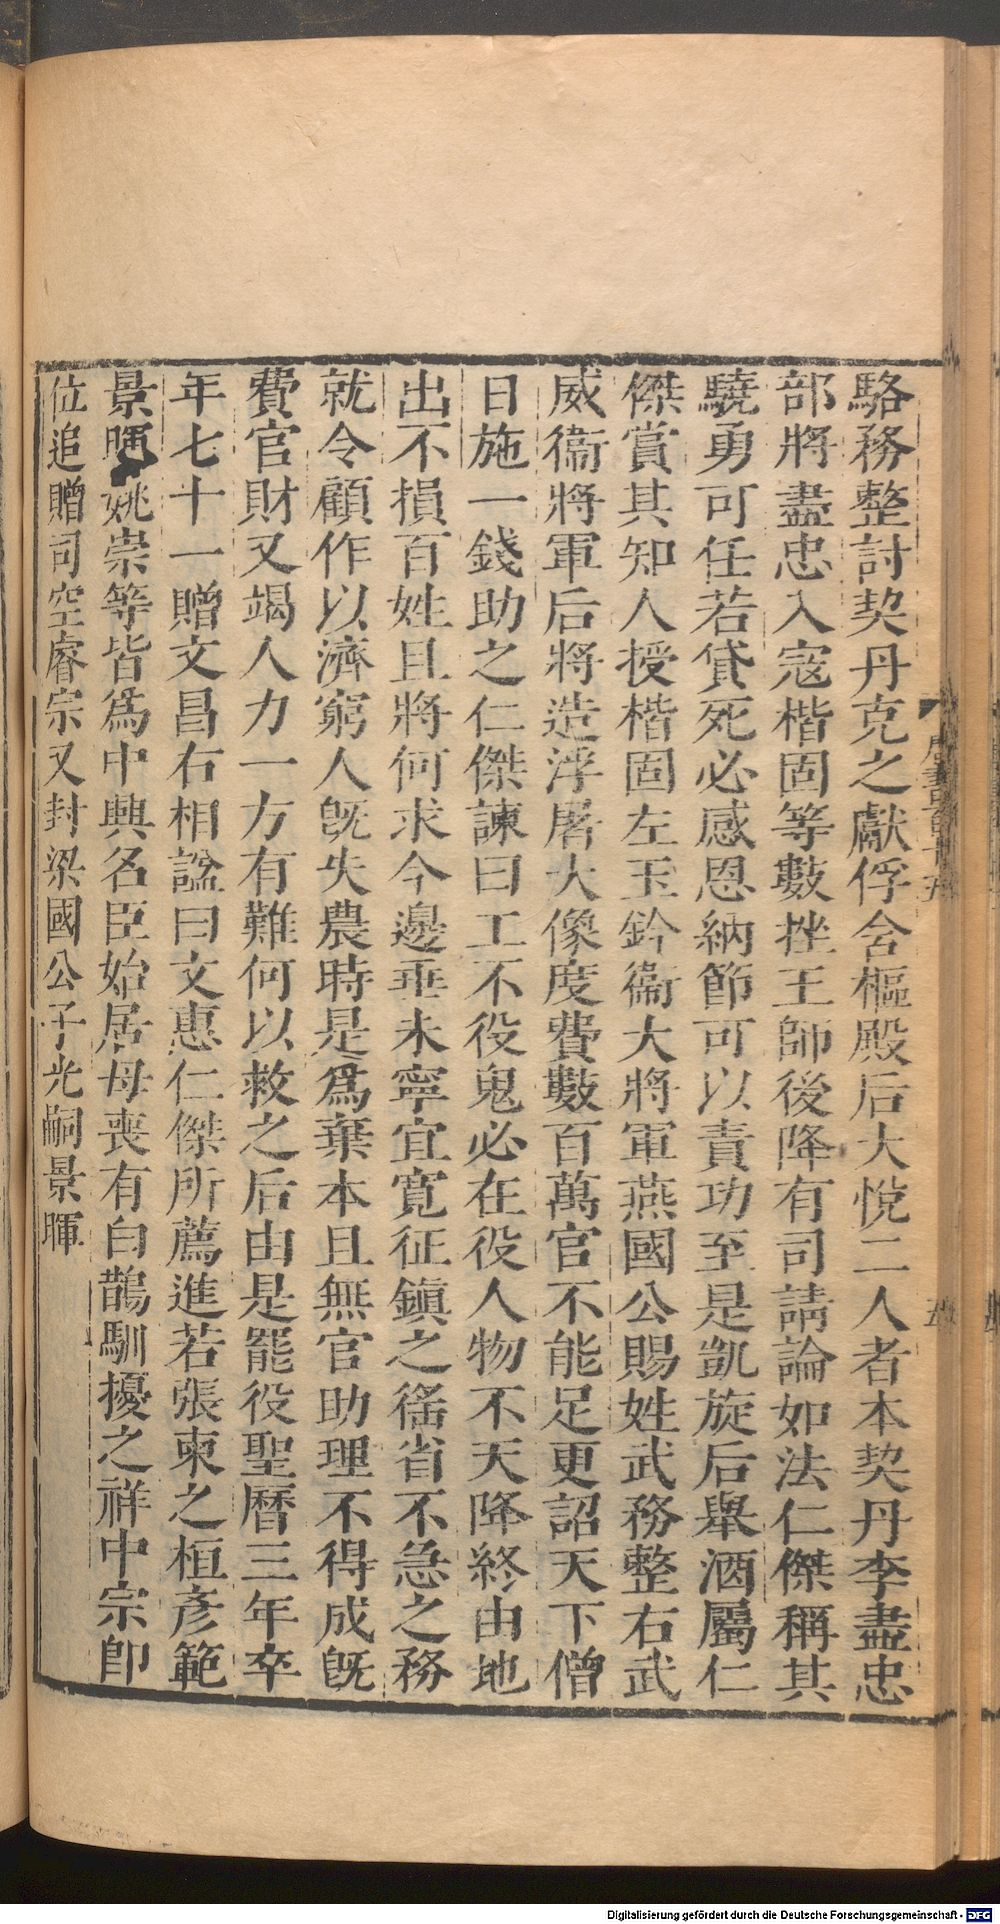 駱務整討契丹克之獻俘含樞殿后大悅二人者本契丹李盡忠
部將盡忠入寇楷固等數挫王師後降有司請論如法仁傑稱其
驍勇可任若貸死必感恩納節可以責功至是凱旋后舉酒屬仁
傑賞其知人授楷固左玉鈐衞大將軍燕國公賜姓武務整右武
威衞將軍后將造浮屠大像度費數百萬官不能足更詔天下僧
日施一錢助之仁傑諫曰工不役鬼必在役人物不天降終由地
出不損百姓且將何求今邊垂未寧宜寬征鎮之徭省不急之務
就令顧作以濟窮人旣失農時是爲棄本且無官助理不得成旣
費官財又竭人力一方有難何以救之后由是罷役聖曆三年卒
年七十一贈文昌右相謚曰文惠仁傑所薦進若張柬之桓彥範
景暉姚崇等皆爲中興名臣始居母喪有白鵲馴擾之祥中宗卽
位追贈司空睿宗又封梁國公子光嗣景暉
五
Digitalisierung gefördert durch die Deutsche Forschungsgemeinschaft - DFG